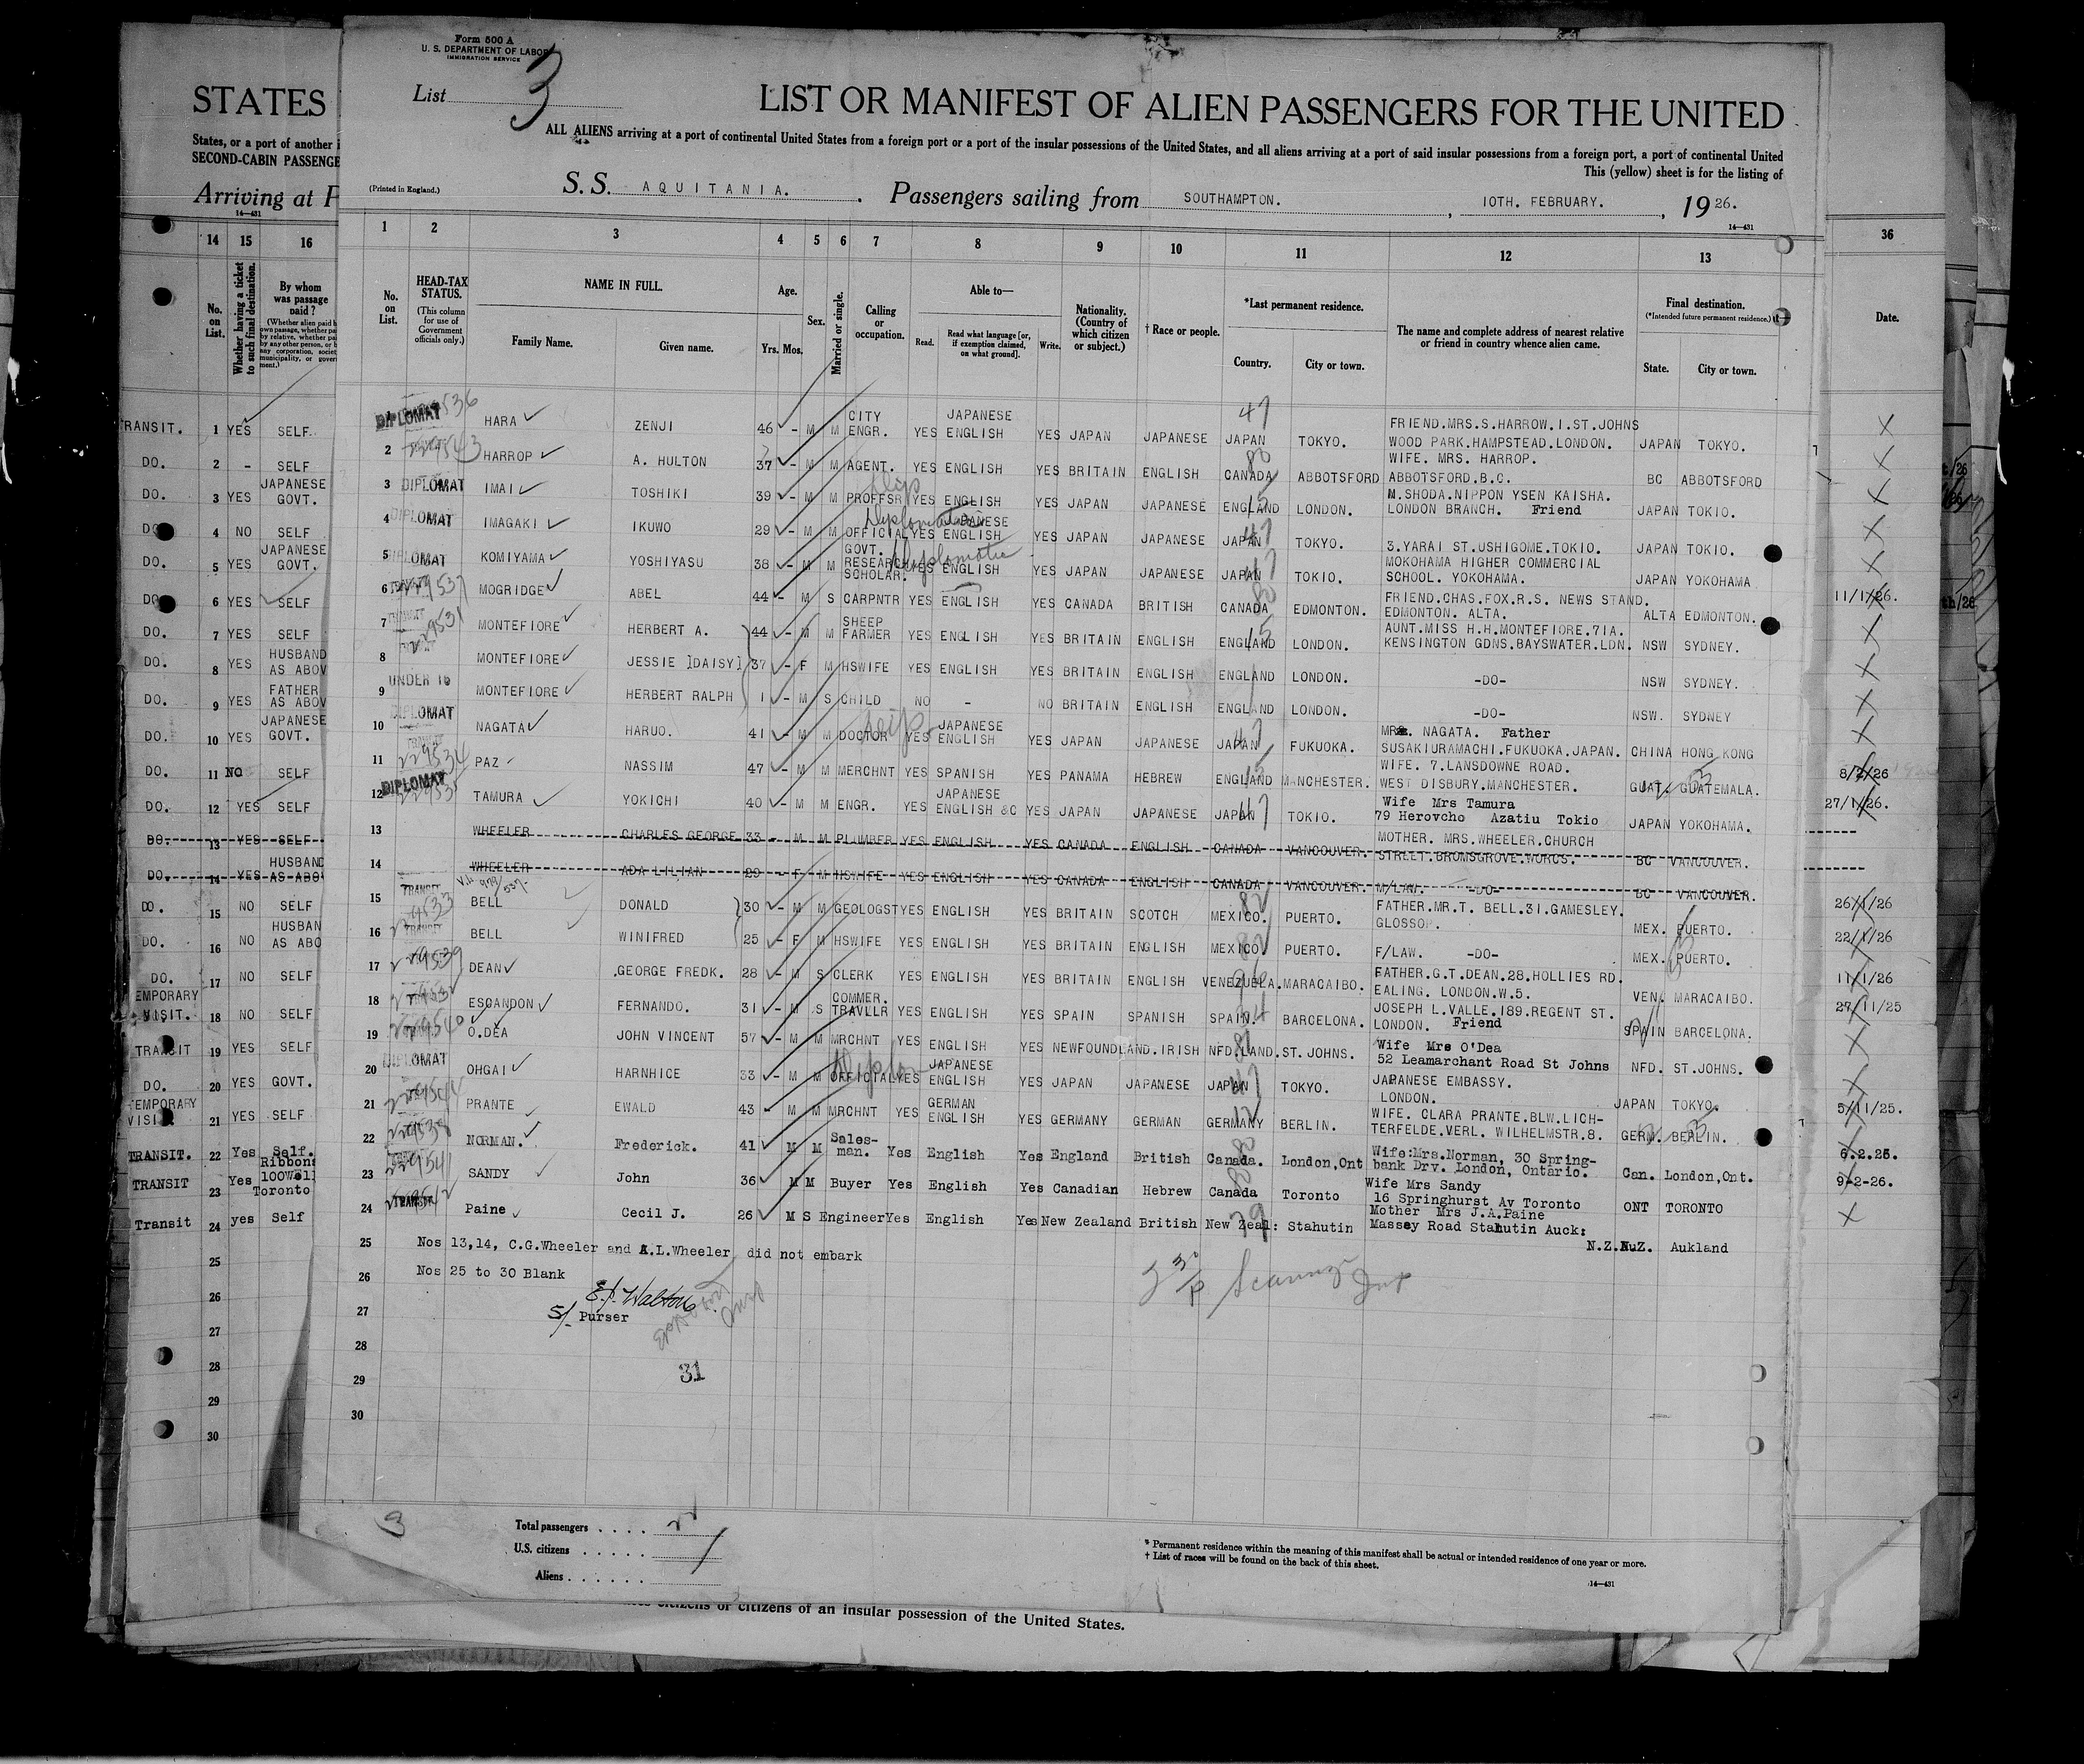 Form 500 A
U. S. DEPARTMENT OF LABOR
IMMIGRATION SERVICE
List 3
STATES
LIST OR MANIFEST OF ALIEN PASSENGERS FOR THE UNITED
ALL ALIENS arriving at a port of continental United States from a foreign port or a port of the insular possessions of the United States, and all aliens arriving at a port of said insular possessions from a foreign port, a port of continental United
States, or a port of another
SECOND-CABIN PASSENGE
This (yellow) sheet is for the listing of
Arriving at P
(Printed in England.)
S.S. AQUITANIA. Passengers sailing from SOUTHAMPTON. , 10TH. FEBRUARY. , 19 26.
14—431
14—431
14 15 16 1 2 3 4 5 6 7 8 9 10 11 12 13 36
No. on List.
Whether having a ticket to such final destination.
By whom was passage paid?
No. on List.
HEAD-TAX STATUS.
(This column for use of Government officials only.)
NAME IN FULL.
Family Name. Given name.
Age.
Yrs. Mos.
Sex.
Married or single.
Calling or occupation.
Able to—
Read.
Read what language [or, if exemption claimed, on what ground].
Write.
Nationality. (Country of which citizen or subject.)
† Race or people.
*Last permanent residence.
Country. City or town.
The name and complete address of nearest relative or friend in country whence alien came.
Final destination.
(*Intended future permanent residence.)
State. City or town.
Date.
RANSIT. 1 YES SELF. DIPLOMAT HARA ZENJI 46 - M M CITY ENGR. YES JAPANESE ENGLISH YES JAPAN JAPANESE JAPAN TOKYO. FRIEND.MRS.S.HARROW.1.ST.JOHNS WOOD PARK.HAMPSTEAD.LONDON. JAPAN TOKYO. X
DO. 2 - SELF 2 HARROP A. HULTON 37 - M M AGENT. YES ENGLISH YES BRITAIN ENGLISH CANADA ABBOTSFORD WIFE. MRS. HARROP. ABBOTSFORD.B.C. BC ABBOTSFORD X
DO. 3 YES JAPANESE GOVT. 3 DIPLOMAT IMAI TOSHIKI 39 - M M PROFFSR YES ENGLISH YES JAPAN JAPANESE ENGLAND LONDON. M.SHODA.NIPPON YSEN KAISHA. LONDON BRANCH. Friend JAPAN TOKIO. X
DO 4 NO SELF 4 DIPLOMAT IMAGAKI IKUWO 29 - M M OFFICIAL YES JAPANESE ENGLISH YES JAPAN JAPANESE JAPAN TOKYO. 3.YARAI ST.USHIGOME.TOKIO. JAPAN TOKIO. X
DO. 5 YES JAPANESE GOVT. 5 DIPLOMAT KOMIYAMA YOSHIYASU 38 - M M GOVT. RESEARCH SCHOLAR. YES ENGLISH YES JAPAN JAPANESE JAPAN TOKIO. MOKOHAMA HIGHER COMMERCIAL SCHOOL. YOKOHAMA. JAPAN YOKOHAMA X
DO 6 YES SELF 6 MOGRIDGE ABEL 44 - M S CARPNTR YES ENGLISH YES CANADA BRITISH CANADA EDMONTON. FRIEND.CHAS.FOX.R.S. NEWS STAND. EDMONTON. ALTA. ALTA EDMONTON. 11/1/26.
DO. 7 YES SELF 7 MONTEFIORE HERBERT A. 44 - M M SHEEP FARMER YES ENGLISH YES BRITAIN ENGLISH ENGLAND LONDON. AUNT.MISS H.H.MONTEFIORE.71A. KENSINGTON GDNS.BAYSWATER.LDN. NSW SYDNEY. X
DO. 8 YES HUSBAND AS ABOV 8 MONTEFIORE JESSIE ]DAISY] 37 - F M HSWIFE YES ENGLISH YES BRITAIN ENGLISH ENGLAND LONDON. -DO- NSW SYDNEY. X
DO. 9 YES FATHER AS ABOV 9 UNDER 16 MONTEFIORE HERBERT RALPH 1 - M S CHILD NO - NO BRITAIN ENGLISH ENGLAND LONDON. -DO- NSW. SYDNEY X
DO. 10 YES JAPANESE GOVT. 10 DIPLOMAT NAGATA HARUO. 41 - M M DOCTOR YES JAPANESE ENGLISH YES JAPAN JAPANESE JAPAN FUKUOKA. NAGATA. Father SUSAKIURAMACHI.FUKUOKA.JAPAN. CHINA HONG KONG X
DO. 11 NO SELF 11 PAZ NASSIM 47 - M M MERCHNT YES SPANISH YES PANAMA HEBREW ENGLAND MANCHESTER. WIFE. 7.LANSDOWNE ROAD. WEST DISBURY.MANCHESTER. GUAT. GUATEMALA. 8/2/26
DO. 12 YES SELF 12 DIPLOMAT TAMURA YOKICHI 40 - M M ENGR. YES JAPANESE ENGLISH &C YES JAPAN JAPANESE JAPAN TOKIO. Wife Mrs Tamura 79 Herovcho Azatiu Tokio JAPAN YOKOHAMA. 27/1/26.
DO. 13 YES SELF 13 WHEELER CHARLES GEORGE 33 - M M PLUMBER YES ENGLISH YES CANADA ENGLISH CANADA VANCOUVER. MOTHER. MRS.WHEELER.CHURCH STREET.BROMSGROVE.WORCS. BC VANCOUVER.
DO. 14 YES HUSBAND AS ABOV 14 WHEELER ADA LILIAN 29 - F M HSWIFE YES ENGLISH YES CANADA ENGLISH CANADA VANCOUVER. M/LAW. -DO- BC VANCOUVER.
DO. 15 NO SELF 15 TRANSIT BELL DONALD 30 - M M GEOLOGST YES ENGLISH YES BRITAIN SCOTCH MEXICO. PUERTO. FATHER.MR.T. BELL.31.GAMESLEY. GLOSSOP. MEX. PUERTO. 26/1/26
DO. 16 NO HUSBAN AS ABO 16 TRANSIT BELL WINIFRED 25 - F M HSWIFE YES ENGLISH YES BRITAIN ENGLISH MEXICO PUERTO. F/LAW. -DO- MEX. PUERTO. 22/1/26
DO. 17 NO SELF 17 DEAN GEORGE FREDK. 28 - M S CLERK YES ENGLISH YES BRITAIN ENGLISH VENEZUELA. MARACAIBO. FATHER.G.T.DEAN.28.HOLLIES RD. EALING. LONDON.W.5. VEN. MARACAIBO. 11/1/26
EMPORARY VISIT. 18 NO SELF 18 ESCANDON FERNANDO. 31 - M S COMMER. TRAVLLR YES ENGLISH YES SPAIN SPANISH SPAIN. BARCELONA. JOSEPH L.VALLE.189.REGENT ST. LONDON. Friend SPAIN BARCELONA. 27/11/25
TRANSIT 19 YES SELF 19 O.DEA JOHN VINCENT 57 - M M MRCHNT YES ENGLISH YES NEWFOUNDLAND. IRISH NFD.LAND. ST.JOHNS. Wife Mrs O'Dea 52 Leamarchant Road St Johns NFD. ST.JOHNS. X
DO. 20 YES GOVT. 20 DIPLOMAT OHGAI HARNHICE 33 - M M OFFICIAL YES JAPANESE ENGLISH YES JAPAN JAPANESE JAPAN TOKYO. JAPANESE EMBASSY. LONDON. JAPAN TOKYO. X
TEMPORARY VISI 21 YES SELF 21 PRANTE EWALD 43 - M M MRCHNT YES GERMAN ENGLISH YES GERMANY GERMAN GERMANY BERLIN. WIFE. CLARA PRANTE.BLW.LICH- TERFELDE.VERL. WILHELMSTR.8. GERM. BERLIN. 5/11/25.
TRANSIT. 22 Yes Self. 22 NORMAN. Frederick. 41 M M Sales- man. Yes English Yes England British Canada. London,Ont Wife:Mrs.Norman, 30 Spring- bank Drv. London, Ontario. Can. London,Ont. 6.2.26.
TRANSIT 23 Yes Ribbons 100Well Toronto 23 SANDY John 36 M M Buyer Yes English Yes Canadian Hebrew Canada Toronto Wife Mrs Sandy 16 Springhurst Av Toronto ONT TORONTO 9-2-26.
Transit 24 yes Self 24 TRANSIT Paine Cecil J. 26 M S Engineer Yes English Yes New Zealand British New Zeal: Stahutin Mother Mrs J.A.Paine Massey Road Stahutin Auck: N.Z. N.Z. Aukland X
25 25 Nos 13,14, C.G.Wheeler and A.L.Wheeler did not embark
26 26 Nos 25 to 30 Blank
27 27 Walton
S/ Purser
28 28
29 29 31
30 30
3
Total passengers . . . .
U.S. citizens . . . . .
Aliens . . . . . .
* Permanent residence within the meaning of this manifest shall be actual or intended residence of one year or more.
† List of races will be found on the back of this sheet.
14—431
citizens or citizens of an insular possession of the United States.